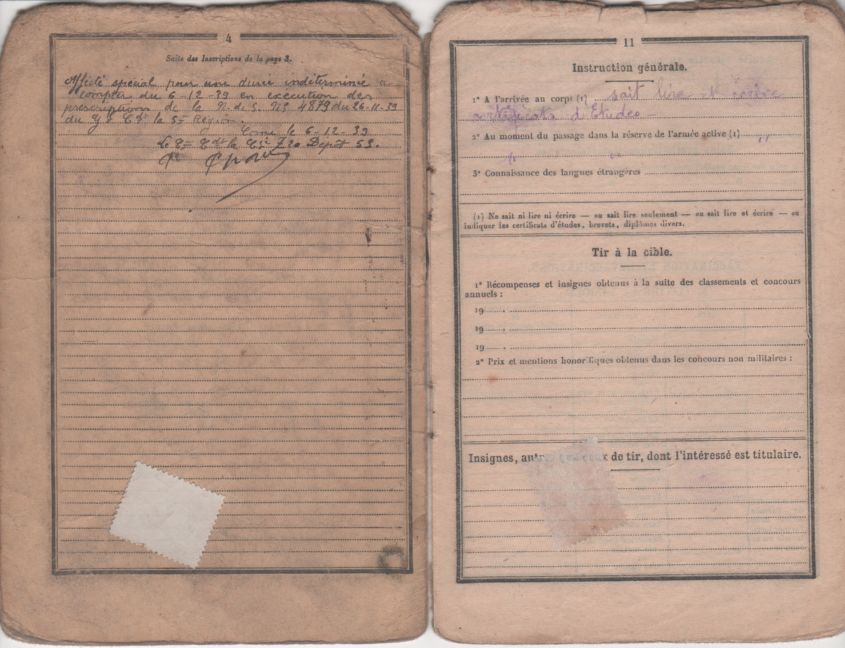 4
Suite des Inscriptions de la page 3.
Affecté spécial pour une durée indéterminée à
compter du 6-12-39 en exécution des
prescriptions de la N. de S. N° 4879 du 26-11-39
du G Ct la 5e Région.
le 6-12-39
Le Cdt le Dépôt 53.
11
Instruction générale.
1° A l'arrivée au corps (1) sait lire et écrire
certificats d'Etudes
2° Au moment du passage dans la réserve de l'armée active (1) "
3° Connaissance des langues étrangères
(1) Ne sait ni lire ni écrire — ou sait lire seulement — ou sait lire et écrire — ou
indiquer les certificats d'études, brevets, diplômes divers.
Tir à la cible.
1° Récompenses et insignes obtenus à la suite des classements et concours
annuels :
19
19
19
2° Prix et mentions honorifiques obtenus dans les concours non militaires :
Insignes, de tir, dont l'intéressé est titulaire.